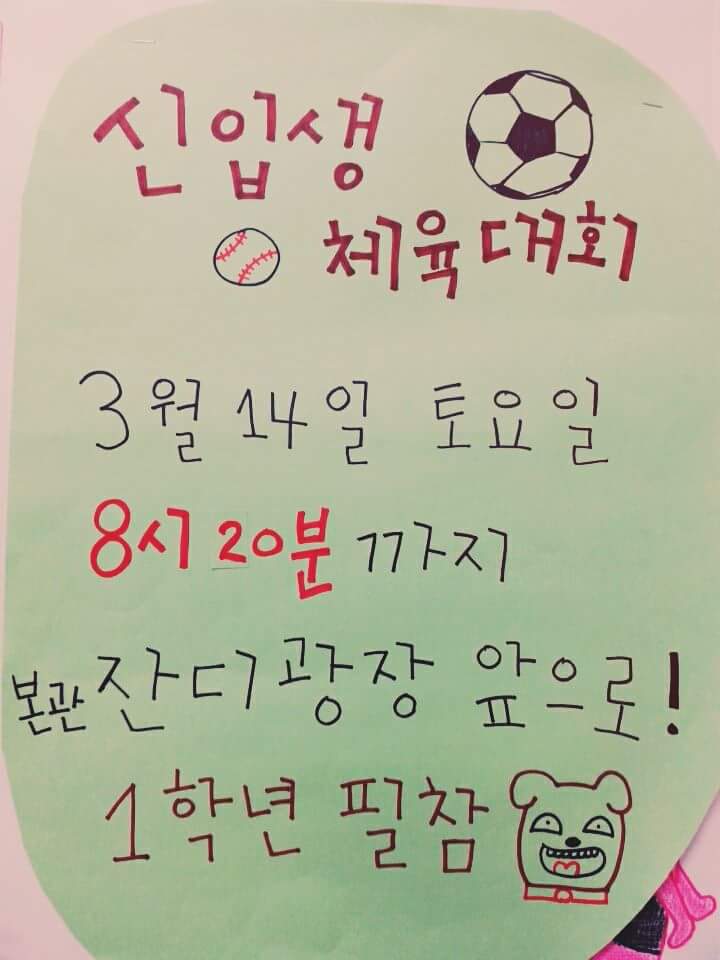 신입생
체육대회
3월 14일 토요일
8시 20분 까지
본관 잔디광장 앞으로!
1학년 필참